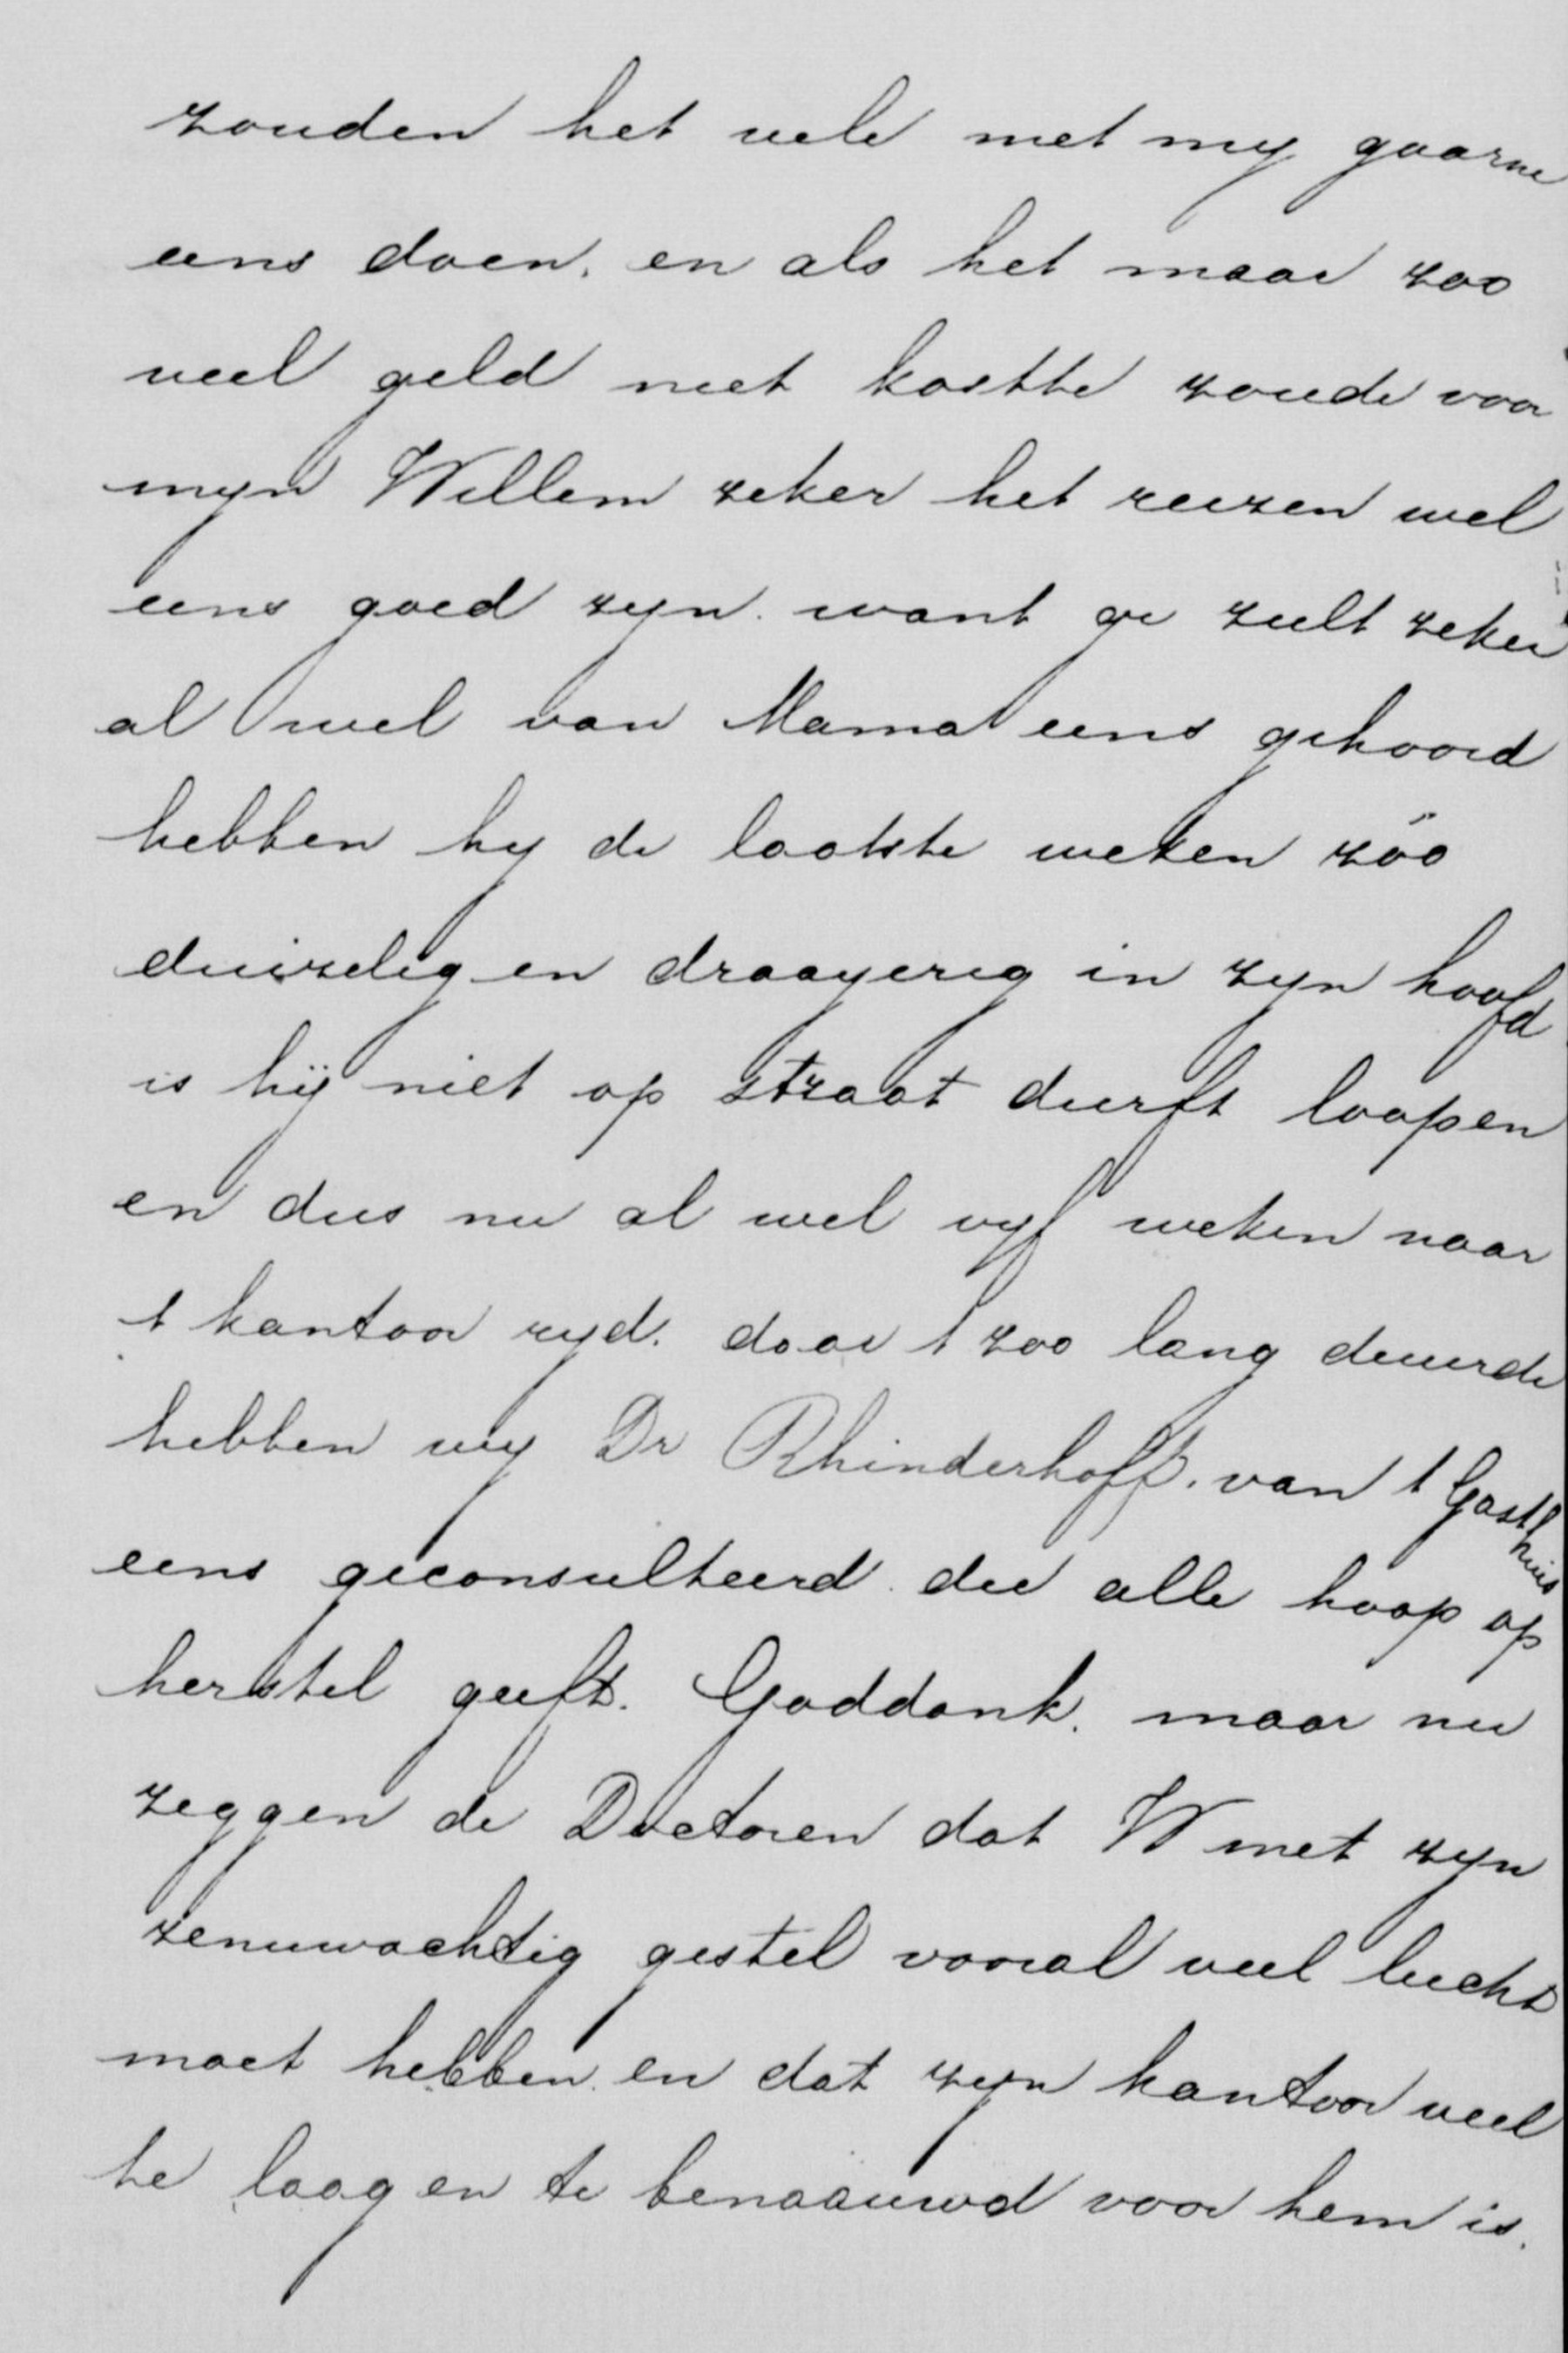 zouden het vele met my gaarne
eens doen. en als het maar zoo
veel geld niet kostte zoude voor
myn Willem zeker het reizen wel
eens goed zyn. want ge zult zeker
al wel van Mama eens gehoord
hebben hy de laatste weken zóo
duizelig en draayerig in zyn hoofd
is hij niet op straat durft loopen
en dus nu al wel vyf weken naar
t kantoor ryd. daar t zoo lang duurde
hebben wy Dr Rhinderhoff. van t Gasthuis
eens geconsulteerd. die alle hoop op
herstel geeft. Goddank. maar nu
zeggen de Doctoren dat W met zyn
zenuwachtig gestel vooral veel lucht
moet hebben. en dat zyn kantoor veel
te laag en te benaauwd voor hem is.